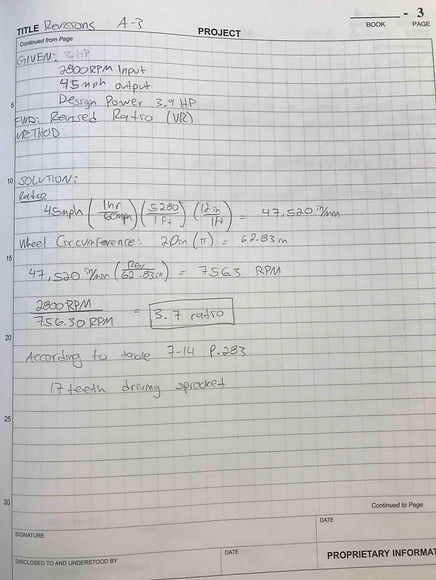 - 3
TITLE Revisions A-3 PROJECT BOOK PAGE
Continued from Page
GIVEN: 3 HP
2800RPM Input
45mph output
5 Design Power 3.9 HP
FIND: Revised Ratio (VR)
METHOD
10 SOLUTION:
Ratio
45mph (1hr/60min) (5280/1ft) (12in/1ft) = 47,520 in/min
Wheel Circumference: 20in (π) = 62.83in
15
47,520 in/min (Rev/62.83in) = 756.3 RPM
2800RPM/756.30RPM = 3.7 ratio
20
According to table 7-14 P.283
17 teeth driving sprocket
25
30
Continued to Page
SIGNATURE DATE
DISCLOSED TO AND UNDERSTOOD BY DATE PROPRIETARY INFORMAT